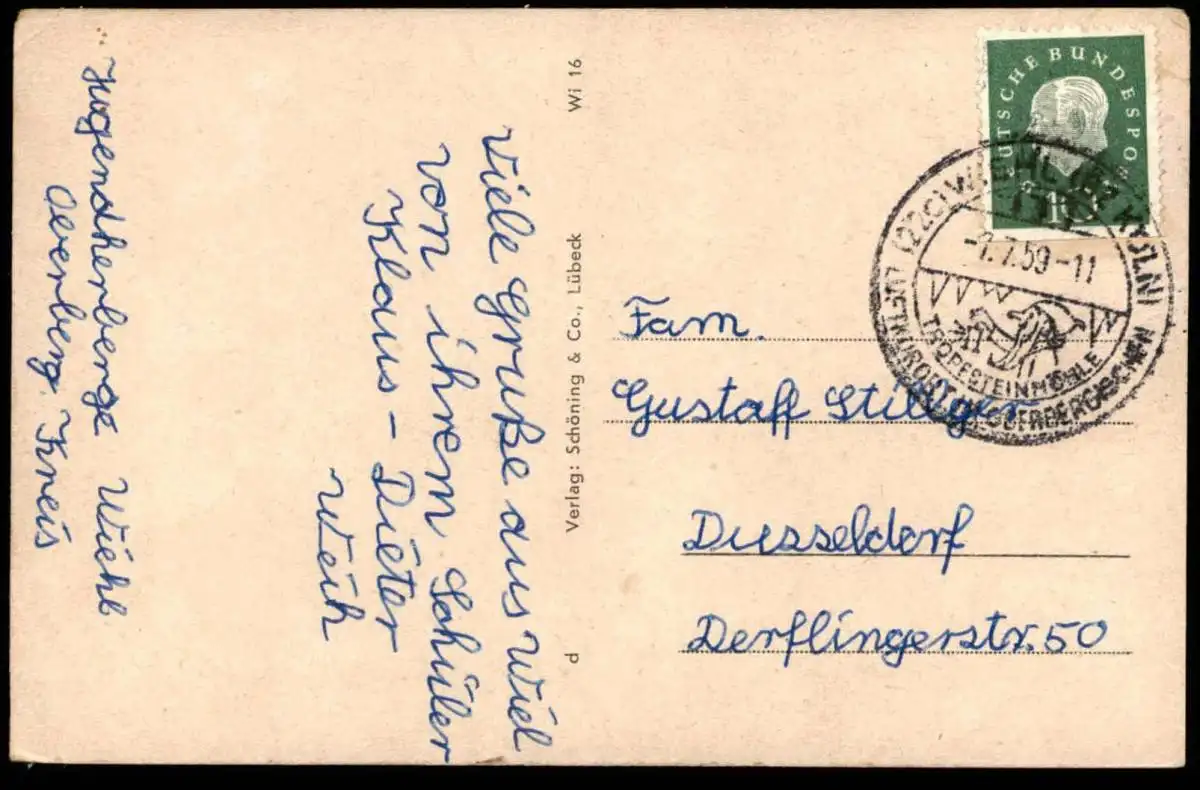 Jugendherberge Wiehl
Oberberg. Kreis
Viele Gruße aus Wiel
von ihrem Schüler
Klaus-Dieter
Weih
Wi 16
Verlag: Schöning & Co., Lübeck
d
DEUTSCHE BUNDESPOST
10
(22c) WIEHL (BZ KÖLN)
-7.7.59-11
TROPFSTEINHÖHLE
LUFTKURORT IM OBERBERGISCHEN
Fam.
Gustaff Stillger
Dusseldorf
Derflingerstr. 50